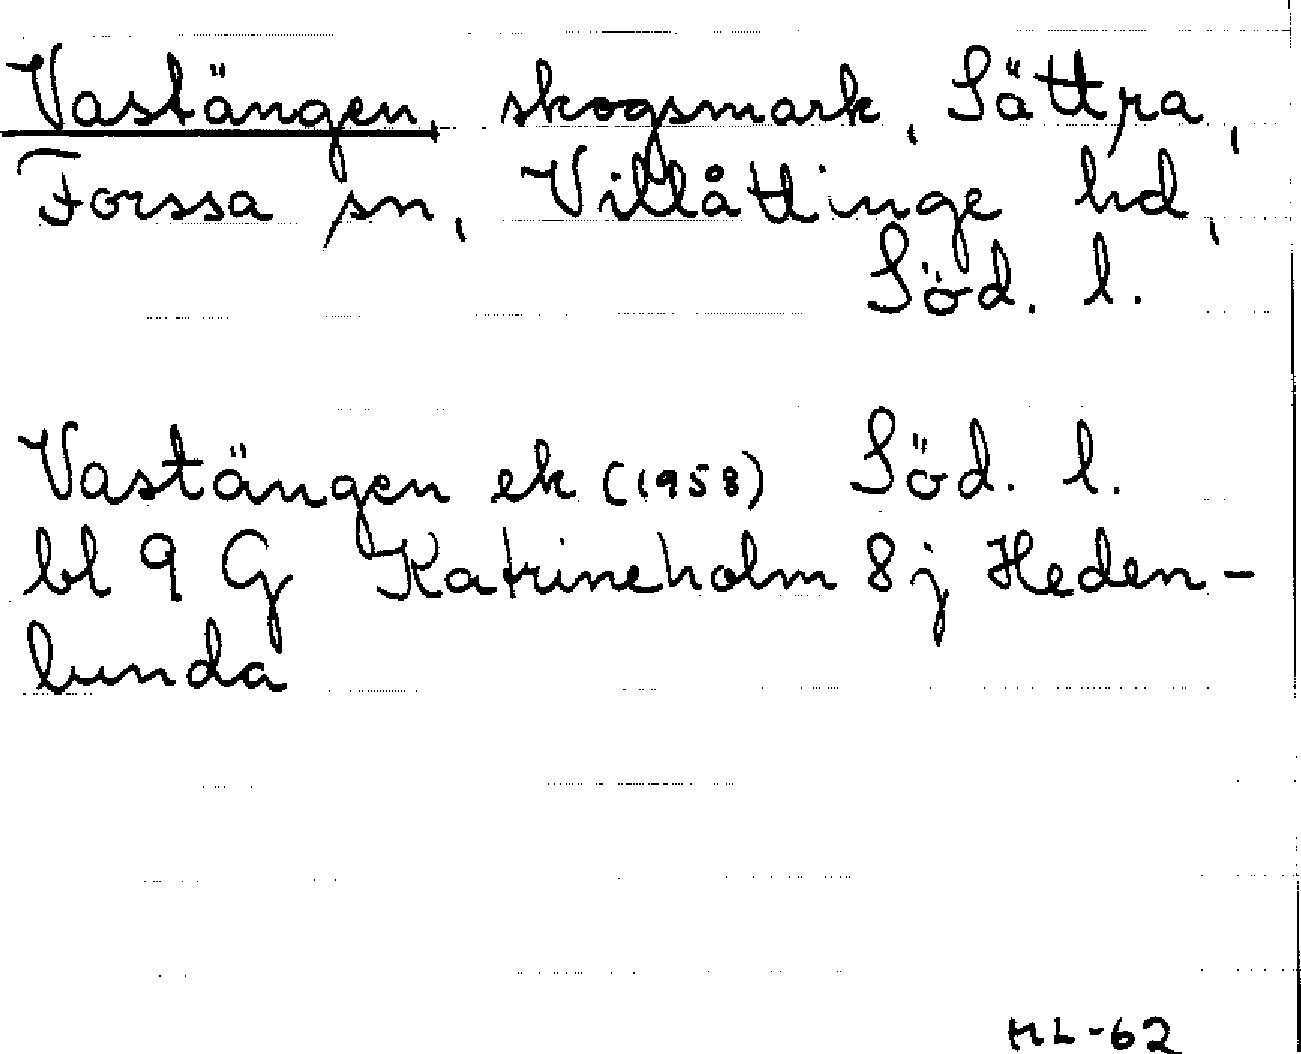 Vastängen, skogsmark, Sättra,
Forssa sn, Villåttinge hd,
Söd. l.
Vastängen ek (1958) Söd. l.
bl 9 G Katrineholm 8 j Heden-
lunda
ML-62